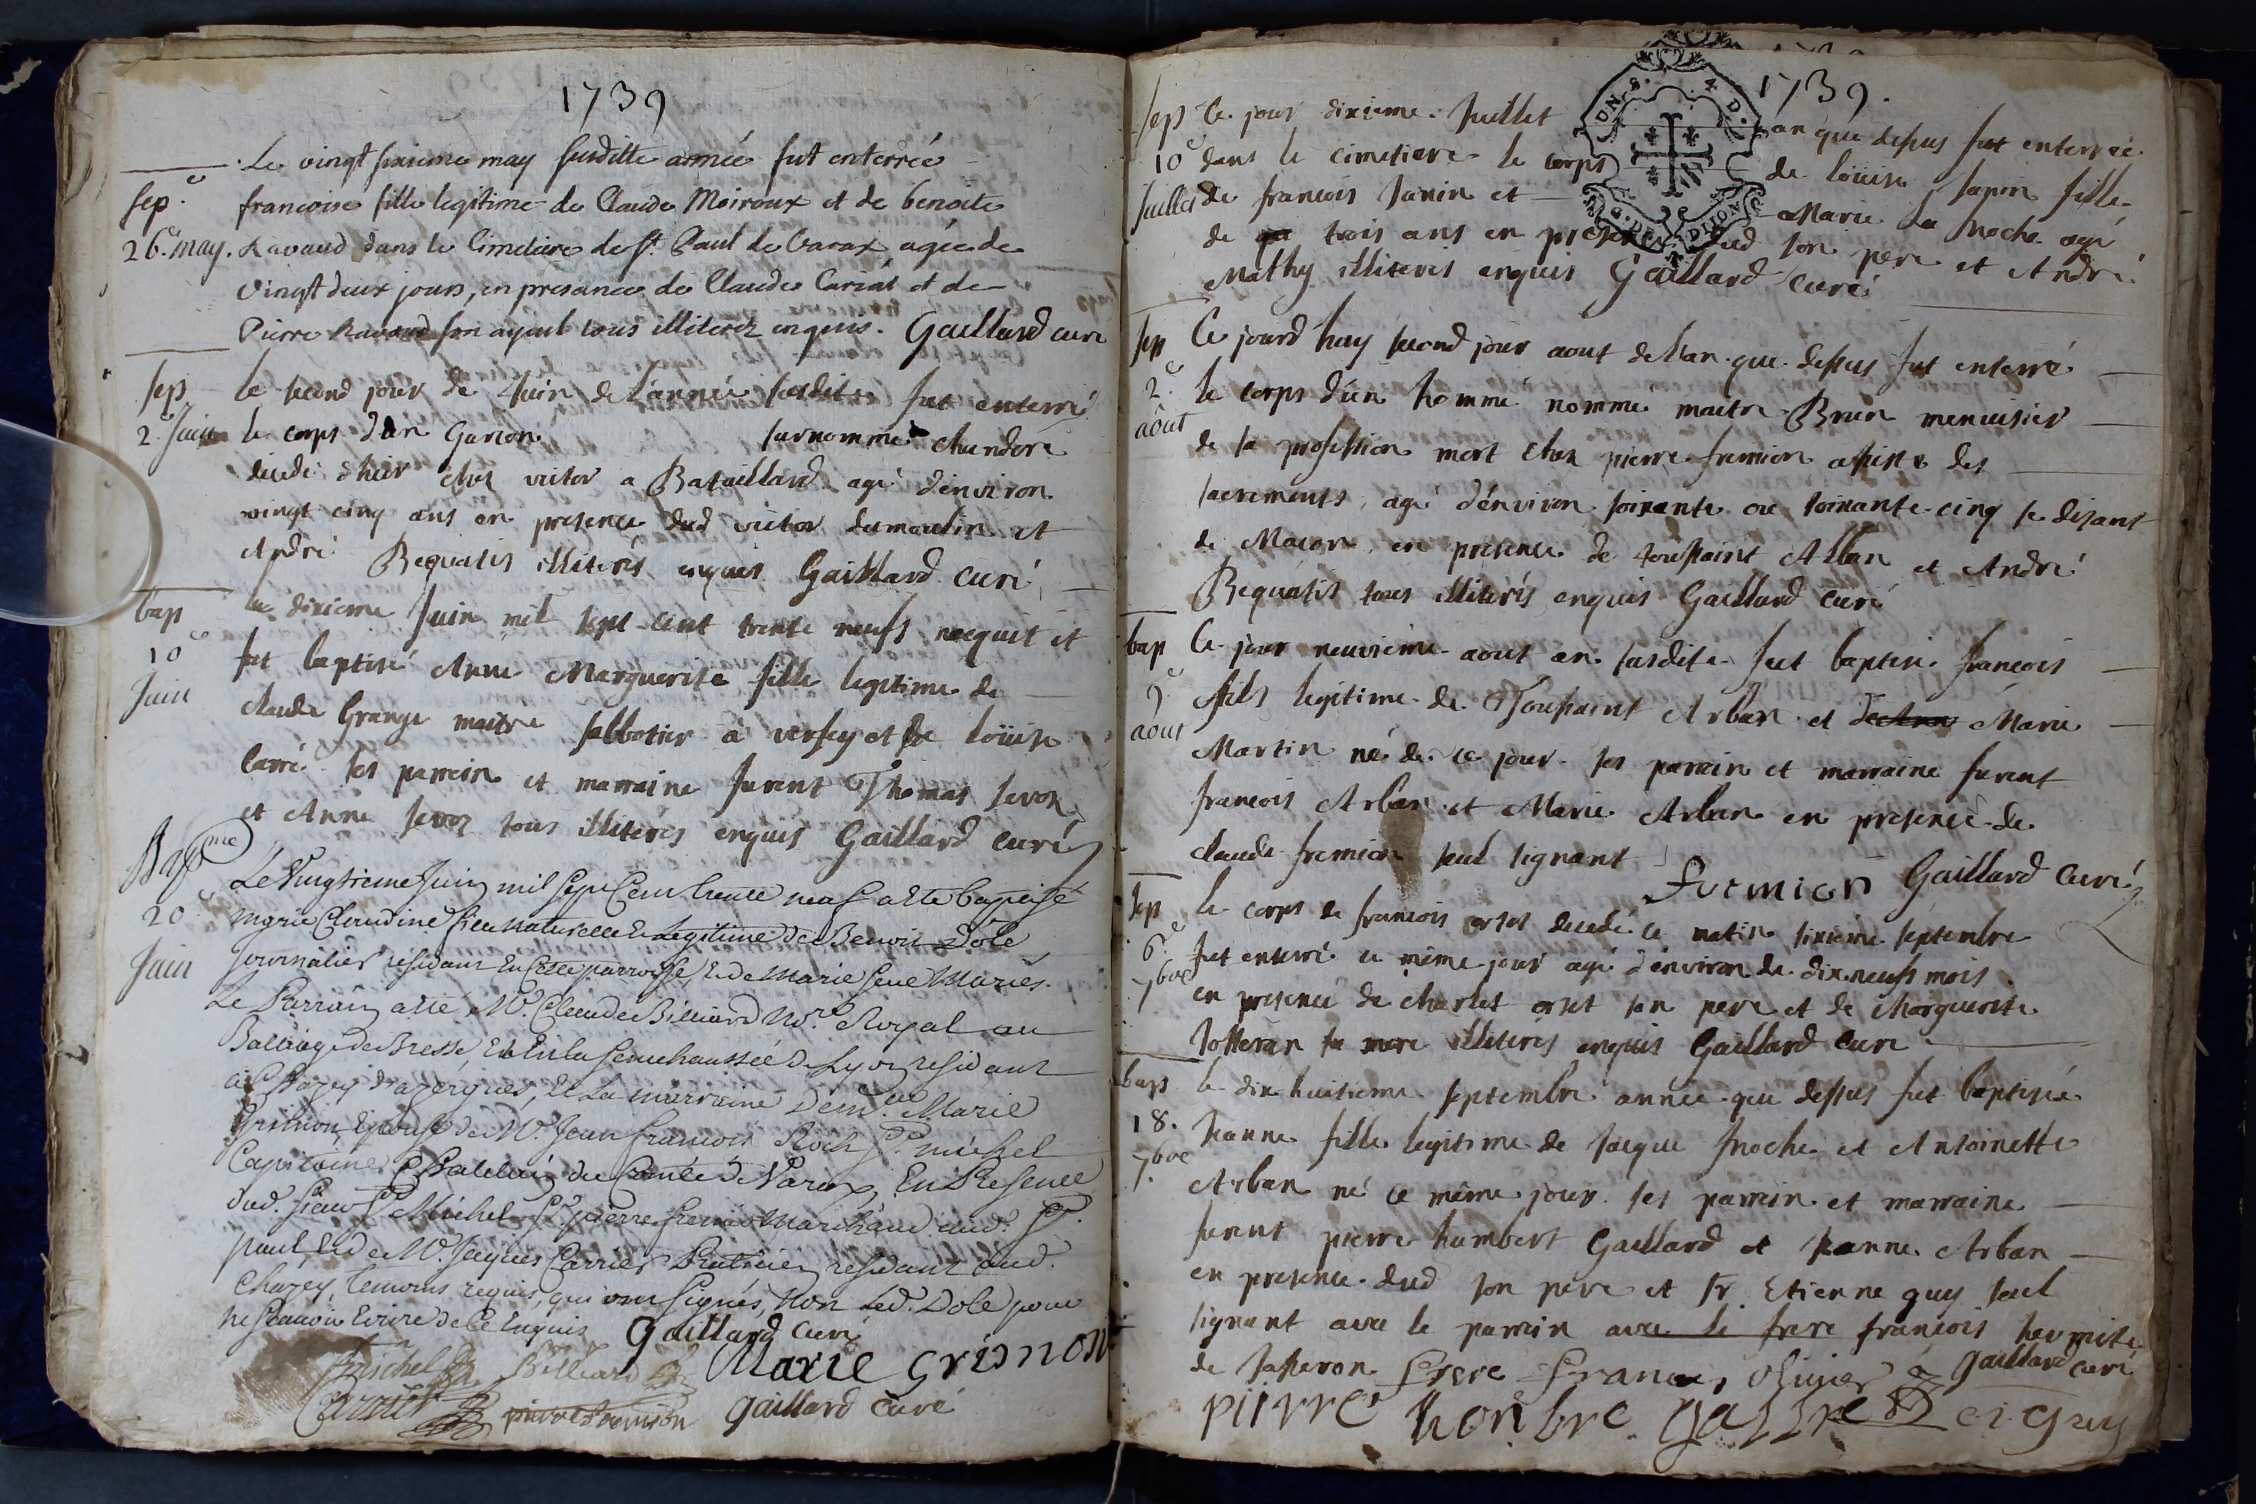 1739
Le vingt sixieme may susditte année fut enterrée
sep.e
francoise fille legitime de Claude Moiroux et de benoite
26.e may.
Ravaud dans le Cimetiere de St. Paul de Varax agée de
vingt deux jours, en presance de Claude Cariat et de
Pierre Ravaud son ayeul tous illiterez enquis. Gaillard curé
sep
le second jour de Juin de l'année susdite fut enterré
2.e Juin
le corps d'un Garcon surnommé chundore
decedé d'hier chez victor a Bataillard agé d'environ
vingt cinq ans en presence dud victor dumoulin et
André Bequatis illiterés enquis Gaillard curé
bap
le dixieme Juin mil sept cent trente neufs nacquit et
10e
fut baptisé Anne Marguerite fille legitime de
Juin
claude Grange maitre sabbotier a versey et de loüise
carré ses parrein et marraine furent Thomas sevoz
et Anne sevoz tous illiterés enquis Gaillard curé
Bapme
Le Vingtieme Juin mil sept Cent trente neuf a eté baptisé
20.e
marie Claudine fille naturelle et Legitime de Benoit Dole
Juin
Journalier residant en cette parroisse, et de Marie Seve Mariés.
Le Parrain a eté Mr. Claude Billiard Nore. Royal au
Balliage de Bresse, et en la Senechaussée de Lyon residant
a Chazey d'azergues, et La marraine Demlle. Marie
Grisnion, Epouse de Mr. Jean francois Roch St. michel
Capitaine Chatelain du Comté de Varax, En Presence
dud. Sieur St. Michel Sr. pierre fremion Marchand aud. St.
paul et de Mr. Jacques Carrier Praticien residant aud.
Chazey, temoins requis, qui ont signés, non led. Dole pour
ne scavoir Ecrire de Ce Enquis Gaillard curé
St michel Billiard Marie Grisnion
Carrier pierre fremion Gaillard curé
1739.
sep
Ce jour dixieme Juillet an que dessus fut enterrée
10e
dans le cimetiere le corps de loüise Janin fille
Juillet
de francois Janin et Marie La Troche agé
de trois ans en presence dud son pere et André
Mathy illiterés enquis Gaillard curé
UN. S. 4. D.
G. DEN. DIJON
sep
Ce jourd'huy second jour aout de l'an que dessus fut enterré
2.e
le corps d'un homme nommé maitre Brun menuisier
aout
de sa profession mort chez pierre fremion assisté des
sacrements, agé d'environ soixante ou soixante cinq se disant
de Macon, en presence de toussaint Alban et André
Bequatis tous illiterés enquis Gaillard curé
bap
Ce jour neuvieme aout an susdite fut baptisé francois
9e
fils legitime de Toussaint Arban et Marie
aout
Martin né de ce jour ses parrein et marraine furent
francois Arban et Marie Arban en presence de
claude fremion seul signant fremion Gaillard curé
sep
le corps de francois orset decedé ce matin sixieme septembre
6e
fut enterré ce même jour agé d'environ de dix neufs mois
7bre
en presence de charles orset son pere et de Marguerite
Josseran sa mere illiterés enquis Gaillard curé
bap
le dix huitieme septembre année que dessus fut baptisée
18.
Jeanne fille legitime de Jacque Troche et Antoinette
7bre
Arban né ce même jour ses parrein et marraine
furent pierre humbert Gaillard et Jeanne Arban
en presence dud son pere et sr Etienne guy seul
signant avec le parrein avec le frere francois hermite
de Jasseron frere francois olivier Gaillard curé
pierre honbre galliard e. guy